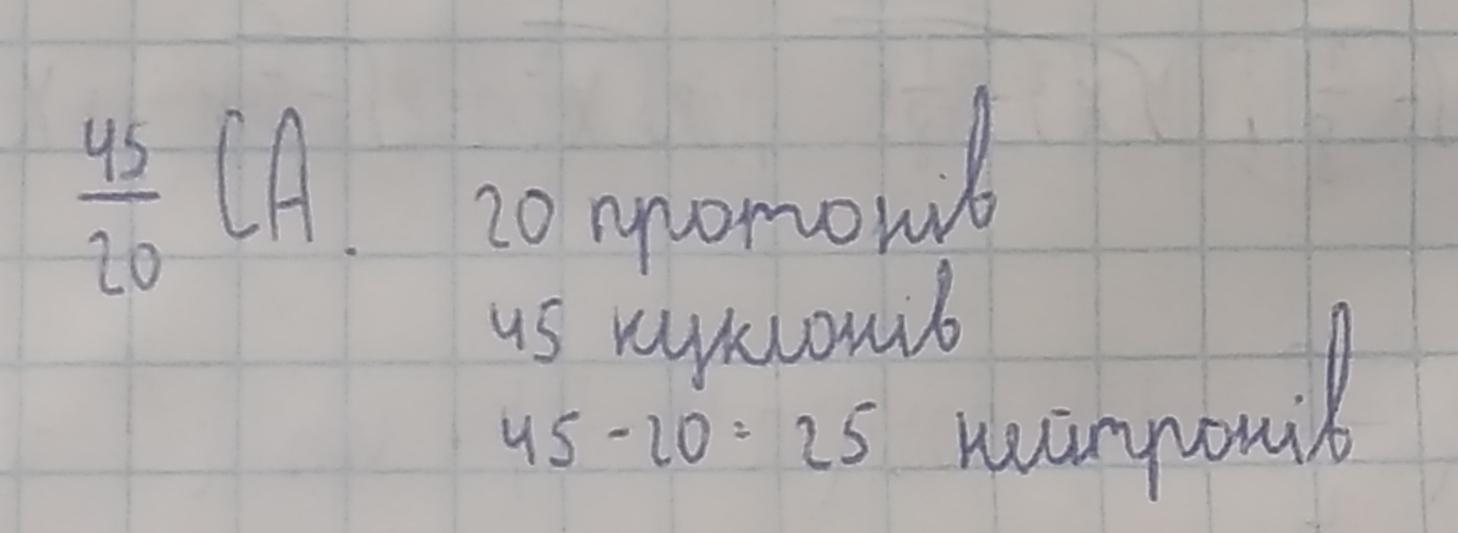 45/20 CA. 20 протонів
45 нуклонів
45 - 20 = 25 нейтронів